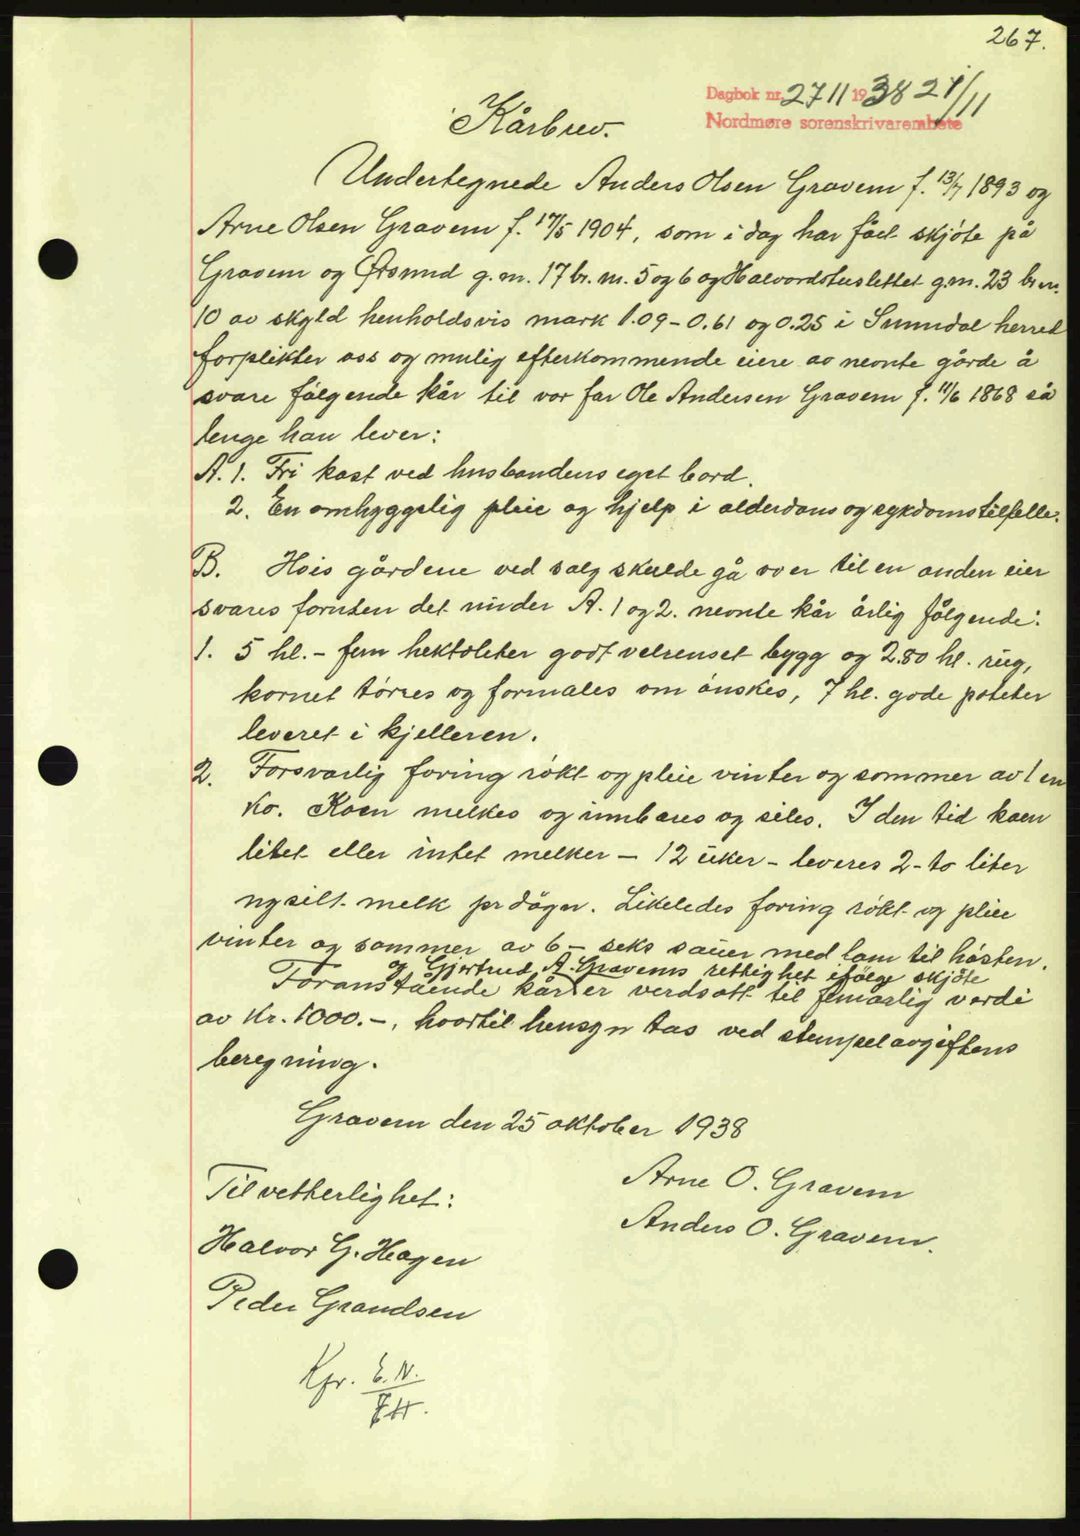 267.
Dagbok nr. 2711 1938 21/11
Nordmøre sorenskrivarembete
Kårbrev.
Undertegnede Anders Olsen Gravem f. 13/7 1893 og
Arne Olsen Gravem f. 17/5 1904, som i dag har fået skjøte på
Gravem og Ørsund g.nr. 17 br. nr. 5 og 6 og Halvordstuslettet g.nr. 23 br.nr.
10 av skyld henholdsvis mark 1.09 - 0.61 og 0.25 i Sunndal herred
forplikter oss og mulig efterkommende eiere av nevnte gårde å
svare følgende kår til vor far Ole Andersen Gravem f. 11/6 1868 så
lenge han lever:
A. 1. Fri kost ved husbondens eget bord.
2. En omhyggelig pleie og hjelp i alderdoms og sykdomstilfelle.
B. Hvis gårdene ved salg skulde gå over til en anden eier
svares foruten det under A. 1 og 2. nevnte kår årlig følgende:
1. 5 hl. - fem hektoliter godt velrenset bygg og 2.80 hl. rug,
kornet tørres og formales om ønskes, 7 hl. gode poteter
leveret i kjelleren.
2. Forsvarlig foring røkt og pleie vinter og sommer av 1 en
ko. Koen melkes og innbæres og siles. I den tid koen
litet eller intet melker - 12 uker - leveres 2 - to liter
nysilt melk pr døgn. Likeledes foring røkt og pleie
vinter og sommer av 6 - seks sauer med lam til høsten.
og Gjertrud A. Gravems rettighet ifølge skjøte
Foranstående kår er verdsatt til femårlig verdi
av Kr. 1000.-, hvortil hensyn tas ved stempelavgiftens
beregning.
Gravem den 25 oktober 1938
Arne O. Gravem
Til vetterlighet:
Anders O. Gravem.
Halvor G. Hagen
Peder Grandsen
Kfr. E.N.